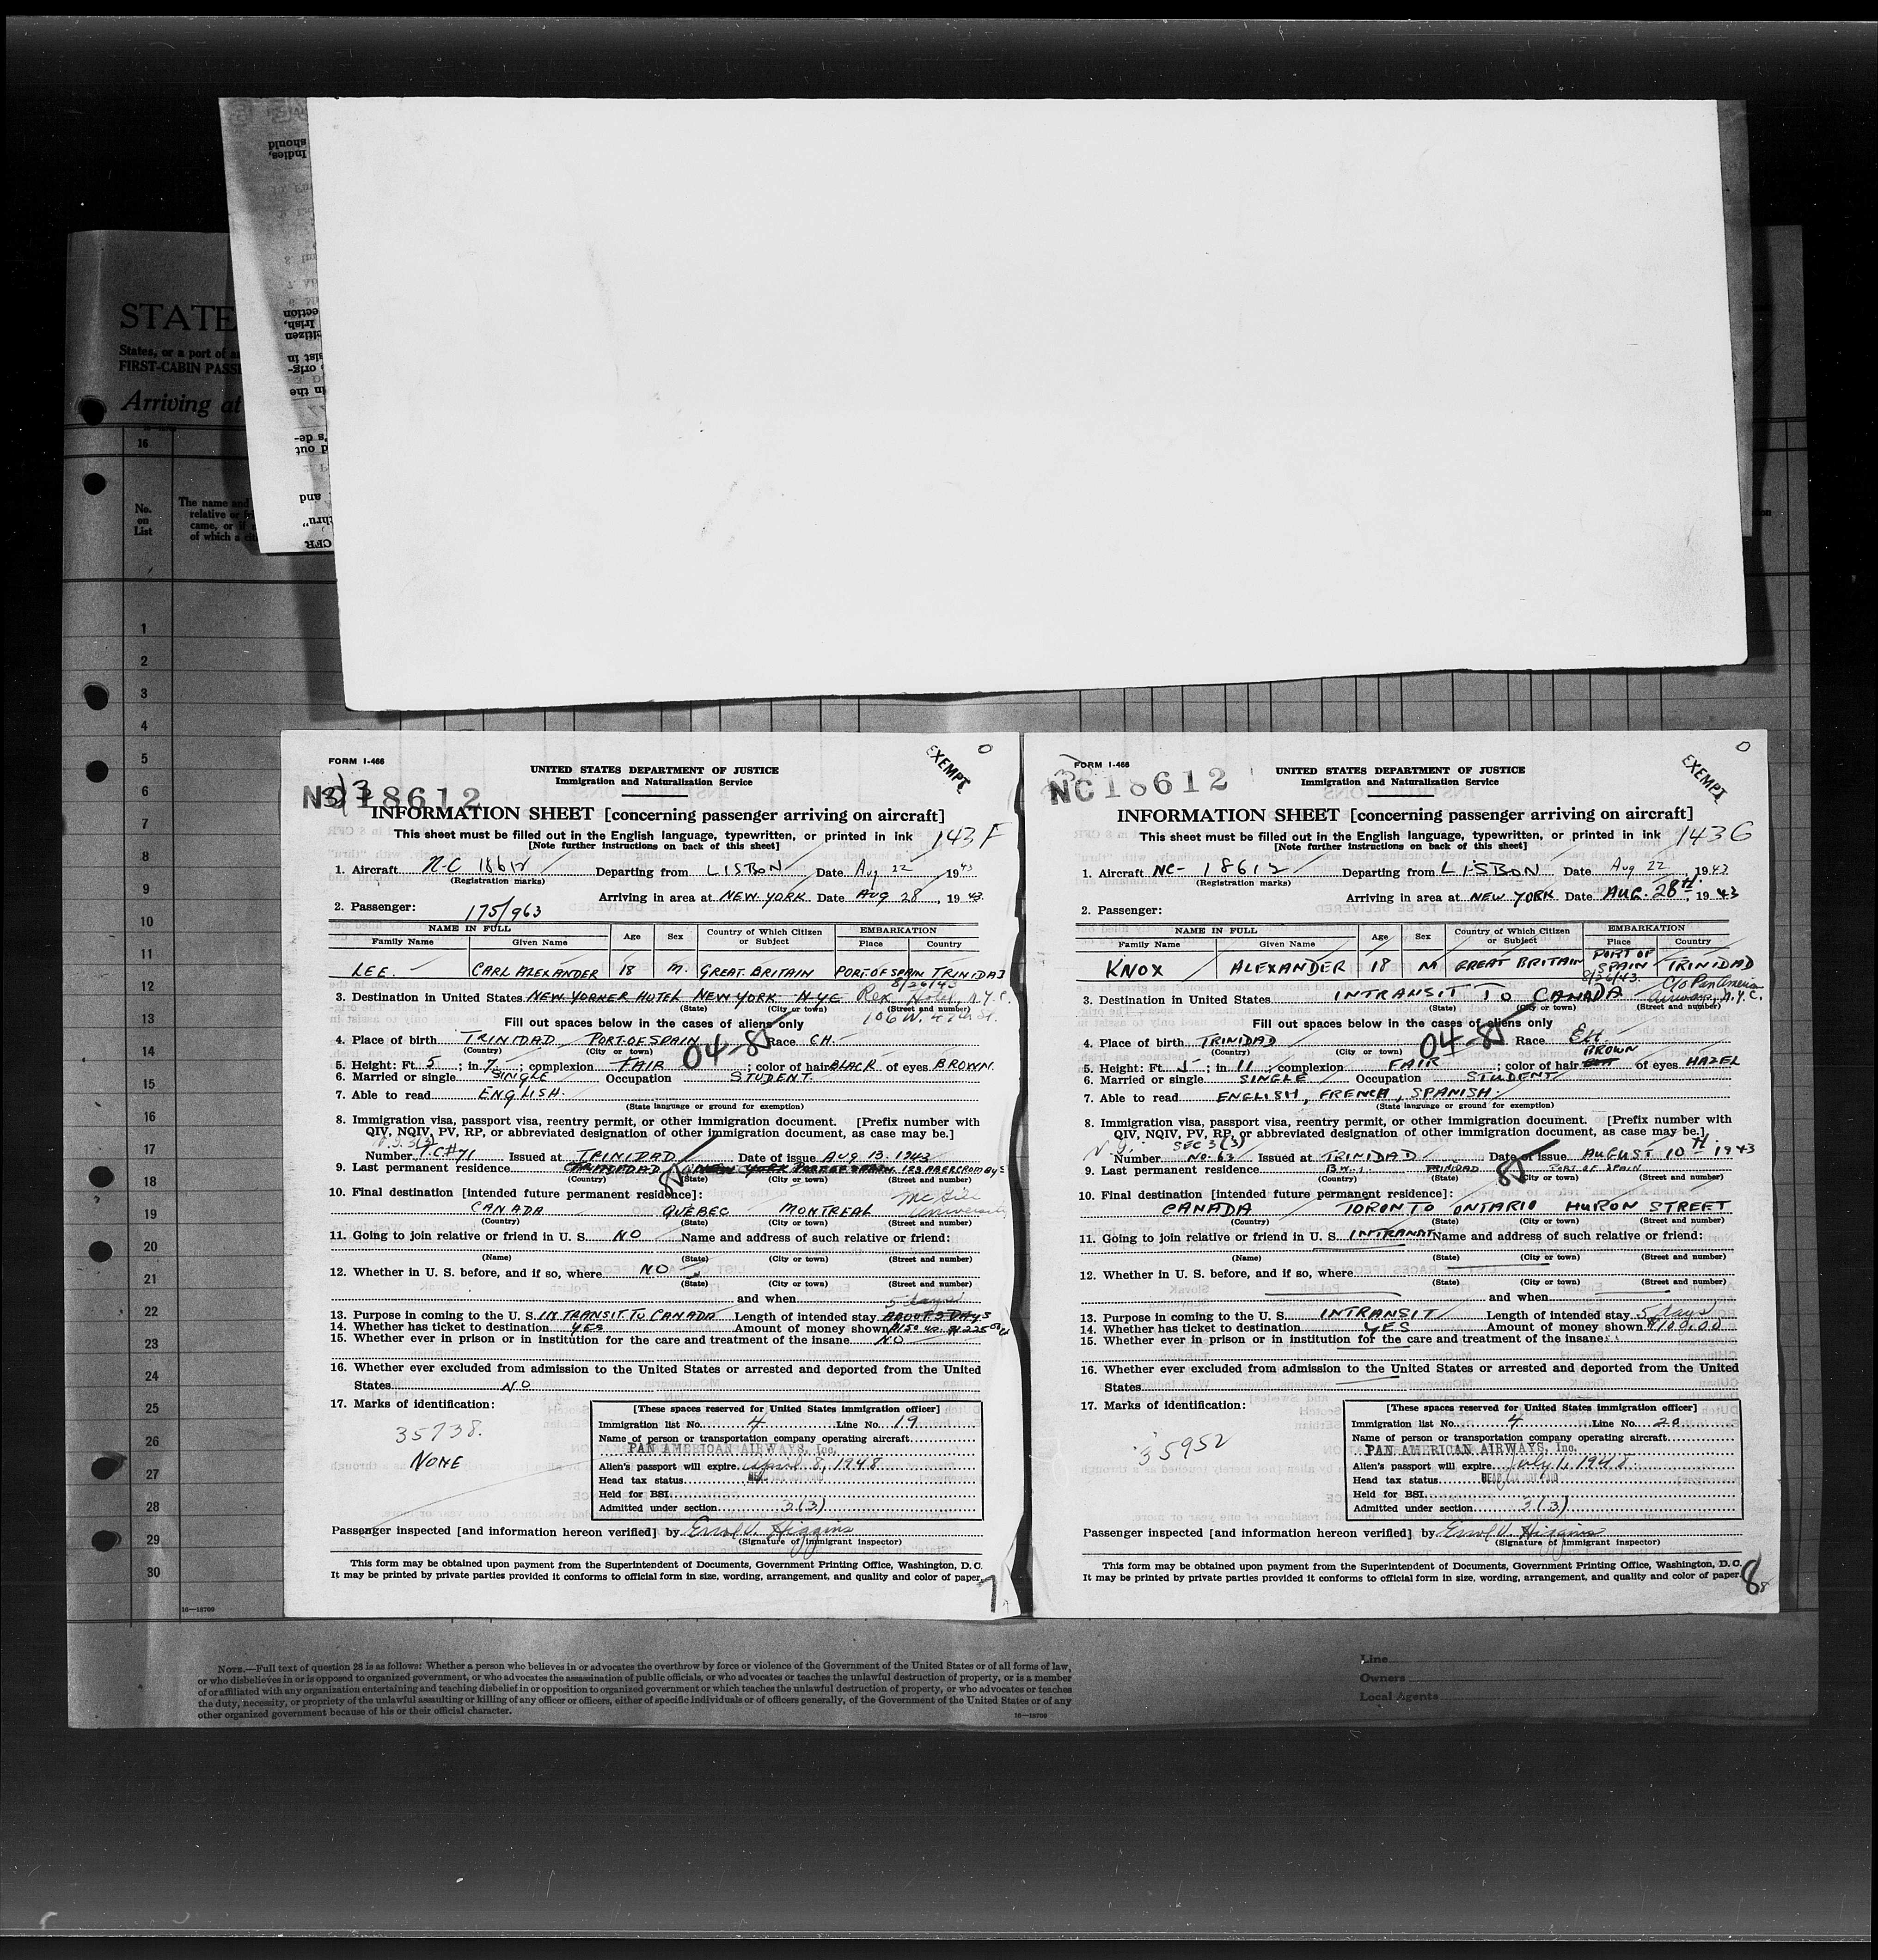 STATE
States, or a port of
FIRST-CABIN PASS
Arriving at
16
No.
on
List
The name and
relative or
came, or if
of which a
1
2
3
4
5
6
7
8
9
10
11
12
13
14
15
16
17
18
19
20
21
22
23
24
25
26
27
28
29
30
16—18709
FORM I-466
EXEMPT
UNITED STATES DEPARTMENT OF JUSTICE
Immigration and Naturalization Service
NC18612
INFORMATION SHEET [concerning passenger arriving on aircraft]
This sheet must be filled out in the English language, typewritten, or printed in ink 143 F
[Note further instructions on back of this sheet]
1. Aircraft N-C 18612 Departing from LISBON Date Aug 22 1943
(Registration marks)
Arriving in area at NEW YORK Date AUG 28, 1943
2. Passenger: 175/963
NAME IN FULL Age Sex Country of Which Citizen or Subject EMBARKATION
Family Name Given Name Place Country
LEE. CARL ALEXANDER 18 M. GREAT BRITAIN PORT OF SPAIN TRINIDAD
8/26/43
3. Destination in United States NEW YORKER HOTEL NEW YORK N.Y.C Rex Hotel, N.Y.C.
(State) (City or town) (Street and number)
106 W. 47th St.
Fill out spaces below in the cases of aliens only
4. Place of birth TRINIDAD PORT-OF-SPAIN Race CH.
(Country) (City or town) 04-8
5. Height: Ft. 5; in 7; complexion FAIR; color of hair BLACK of eyes BROWN.
6. Married or single SINGLE Occupation STUDENT
7. Able to read ENGLISH.
(State language or ground for exemption)
8. Immigration visa, passport visa, reentry permit, or other immigration document. [Prefix number with
QIV, NQIV, PV, RP, or abbreviated designation of other immigration document, as case may be.]
Number Issued at TRINIDAD Date of issue AUG 13. 1943
9. Last permanent residence TRINIDAD NEW YORK PORT OF SPAIN 123 ABERCROMBY S
(Country) (State) (City or town) (Street and number)
10. Final destination [intended future permanent residence]: McGill
CANADA QUEBEC MONTREAL University
(Country) (State) (City or town) (Street and number)
11. Going to join relative or friend in U. S. NO Name and address of such relative or friend:
(Name) (State) (City or town) (Street and number)
12. Whether in U. S. before, and if so, where NO
(State) (City or town) (Street and number)
and when
5 days
13. Purpose in coming to the U. S. IN TRANSIT TO CANADA Length of intended stay ABOUT 3 DAYS
14. Whether has ticket to destination YES Amount of money shown
15. Whether ever in prison or in institution for the care and treatment of the insane NO
16. Whether ever excluded from admission to the United States or arrested and deported from the United
States NO
17. Marks of identification:
35738.
NONE
[These spaces reserved for United States immigration officer]
Immigration list No. 4 Line No. 19
Name of person or transportation company operating aircraft
PAN AMERICAN AIRWAYS, Inc.
Alien's passport will expire April 8, 1948
Head tax status
Held for BSI
Admitted under section 3(3)
Passenger inspected [and information hereon verified] by Errol V. Higgins
(Signature of immigrant inspector)
This form may be obtained upon payment from the Superintendent of Documents, Government Printing Office, Washington, D. C.
It may be printed by private parties provided it conforms to official form in size, wording, arrangement, and quality and color of paper.
7
FORM I-466
EXEMPT
UNITED STATES DEPARTMENT OF JUSTICE
Immigration and Naturalization Service
NC18612
INFORMATION SHEET [concerning passenger arriving on aircraft]
This sheet must be filled out in the English language, typewritten, or printed in ink 143 G
[Note further instructions on back of this sheet]
1. Aircraft NC- 18612 Departing from LISBON Date Aug 22, 1943
(Registration marks)
Arriving in area at NEW YORK Date AUG. 28TH, 1943
2. Passenger:
NAME IN FULL Age Sex Country of Which Citizen or Subject EMBARKATION
Family Name Given Name Place Country
KNOX ALEXANDER 18 M GREAT BRITAIN PORT OF SPAIN TRINIDAD
8/26/43
3. Destination in United States INTRANSIT TO CANADA c/o Pan America Airways, N.Y.C.
(State) (City or town) (Street and number)
Fill out spaces below in the cases of aliens only
4. Place of birth TRINIDAD Race
(Country) (City or town) 04-8
5. Height: Ft. 5; in 11; complexion FAIR; color of hair BROWN of eyes HAZEL
6. Married or single SINGLE Occupation STUDENT
7. Able to read ENGLISH, FRENCH, SPANISH.
(State language or ground for exemption)
8. Immigration visa, passport visa, reentry permit, or other immigration document. [Prefix number with
QIV, NQIV, PV, RP, or abbreviated designation of other immigration document, as case may be.]
SEC 3(3)
Number No. 63 Issued at TRINIDAD Date of issue AUGUST 10TH 1943
9. Last permanent residence B.W.I. TRINIDAD PORT OF SPAIN
(Country) (State) (City or town) (Street and number)
10. Final destination [intended future permanent residence]:
CANADA TORONTO ONTARIO HURON STREET
(Country) (State) (City or town) (Street and number)
11. Going to join relative or friend in U. S. INTRANSIT Name and address of such relative or friend:
(Name) (State) (City or town) (Street and number)
12. Whether in U. S. before, and if so, where
(State) (City or town) (Street and number)
and when
13. Purpose in coming to the U. S. INTRANSIT Length of intended stay 5 days
14. Whether has ticket to destination YES Amount of money shown $100.00
15. Whether ever in prison or in institution for the care and treatment of the insane
16. Whether ever excluded from admission to the United States or arrested and deported from the United
States
17. Marks of identification:
35952
[These spaces reserved for United States immigration officer]
Immigration list No. 4 Line No. 20
Name of person or transportation company operating aircraft
PAN AMERICAN AIRWAYS, Inc.
Alien's passport will expire July 1, 1948
Head tax status
Held for BSI
Admitted under section 3(3)
Passenger inspected [and information hereon verified] by Errol V. Higgins
(Signature of immigrant inspector)
This form may be obtained upon payment from the Superintendent of Documents, Government Printing Office, Washington, D. C.
It may be printed by private parties provided it conforms to official form in size, wording, arrangement, and quality and color of paper.
8
NOTE.—Full text of question 28 is as follows: Whether a person who believes in or advocates the overthrow by force or violence of the Government of the United States or of all forms of law,
or who disbelieves in or is opposed to organized government, or who advocates the assassination of public officials, or who advocates or teaches the unlawful destruction of property, or is a member
of or affiliated with any organization entertaining and teaching disbelief in or opposition to organized government or which teaches the unlawful destruction of property, or who advocates or teaches
the duty, necessity, or propriety of the unlawful assaulting or killing of any officer or officers, either of specific individuals or of officers generally, of the Government of the United States or of any
other organized government because of his or their official character.
16—18709
Line
Owners
Local Agents